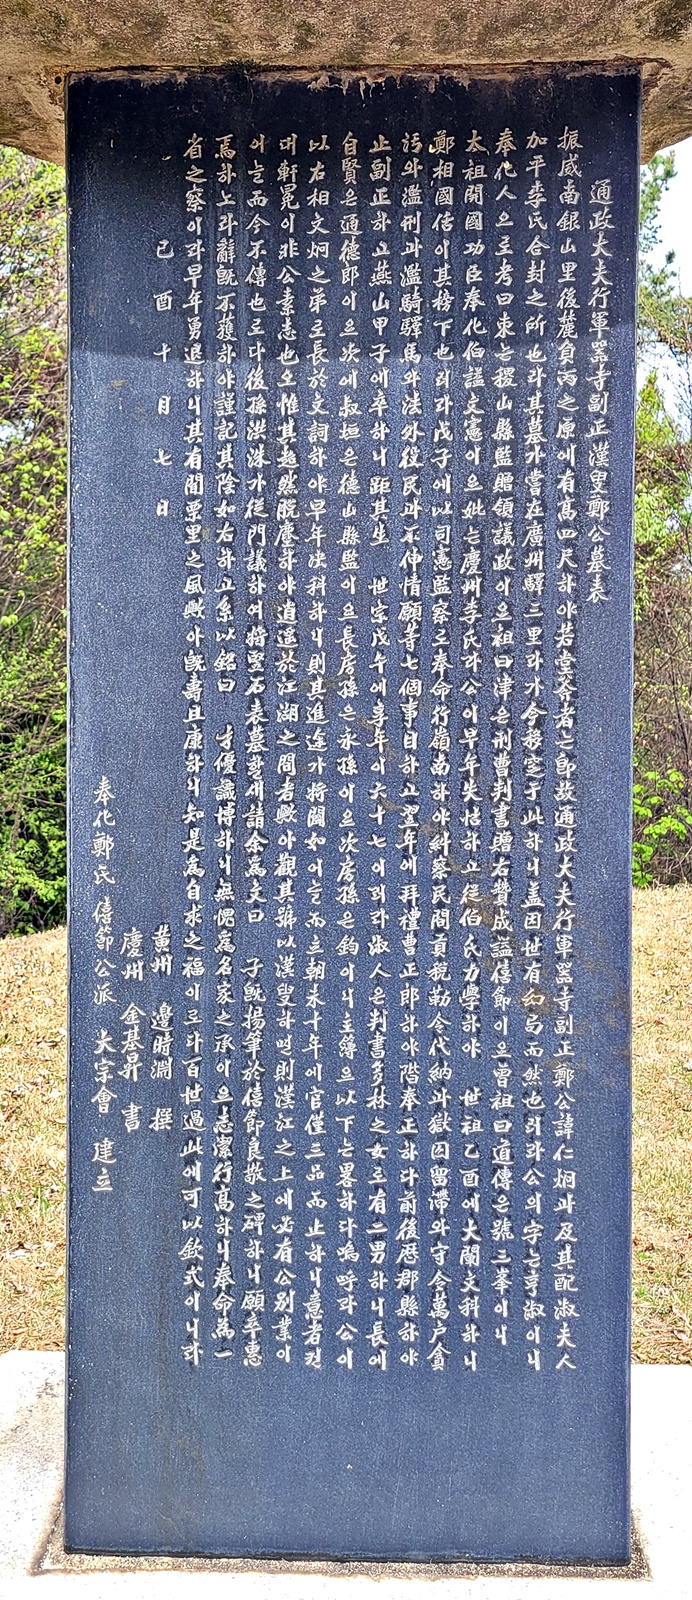 通政大夫行軍器寺副正漢叟鄭公墓表
振威南銀山里後麓負丙之原에有高四尺하야若堂斧者는卽故通政大夫行軍器寺副正鄭公諱仁炯과及其配淑夫人
加平李氏合封之所也라其墓가嘗在廣州驛三里라가今移窆于此하니盖因世有幻局而然也러라公의字는亨淑이니
奉化人으로考曰束는稷山縣監贈領議政이오祖曰津은刑曹判書贈右贊成諡僖節이오曾祖曰道傳은號三峯이니
太祖開國功臣奉化伯諡文憲이오妣는慶州李氏라公이早年失怙하고從伯氏力學하야 世祖乙酉에大闡文科하니
鄭相國佸이其榜下也러라戊子에以司憲監察로奉命行嶺南하야糾察民間貢稅勒令代納과獄囚留滯와守令萬戶貪
汚와濫刑과濫騎驛馬와法外役民과不伸情願等七個事目하고翌年에拜禮曹正郎하야階奉正하다前後歷郡縣하야
止副正하고燕山甲子에卒하니距其生 世宗戊午에享年이六十七이러라淑人은判書多林之女로有二男하니長에
自賢은通德郎이오次에叔垣은德山縣監이오長房孫은永孫이오次房孫은鈞이니主簿오以下는畧하다嗚呼라公이
以右相文炯之弟로長於文詞하야早年決科하니則其進途가將闢如어늘而立朝未十年에官僅三品而止하니意者컨
대軒冕이非公素志也오惟其超然脫塵하야逍遙於江湖之間者歟아觀其號以漢叟하면則漢江之上에必有公別業이
어늘而今不傳也로다後孫洪洙가從門議하여將竪石表墓할새請余爲文曰 子旣揚筆於僖節良敬之碑하니願卒惠
焉하노라辭旣不獲하야謹記其陰如右하고系以銘曰 才優識博하니無愧爲名家之承이오志潔行高하니奉命爲一
省之察이라早年勇退하니其有聞栗里之風歟아旣壽且康하니知是爲自求之福이로다百世過此에可以欽式이니라
己酉十月七日
黃州 邊時淵 撰
慶州 金基昇 書
奉化鄭氏僖節公派 大宗會 建立